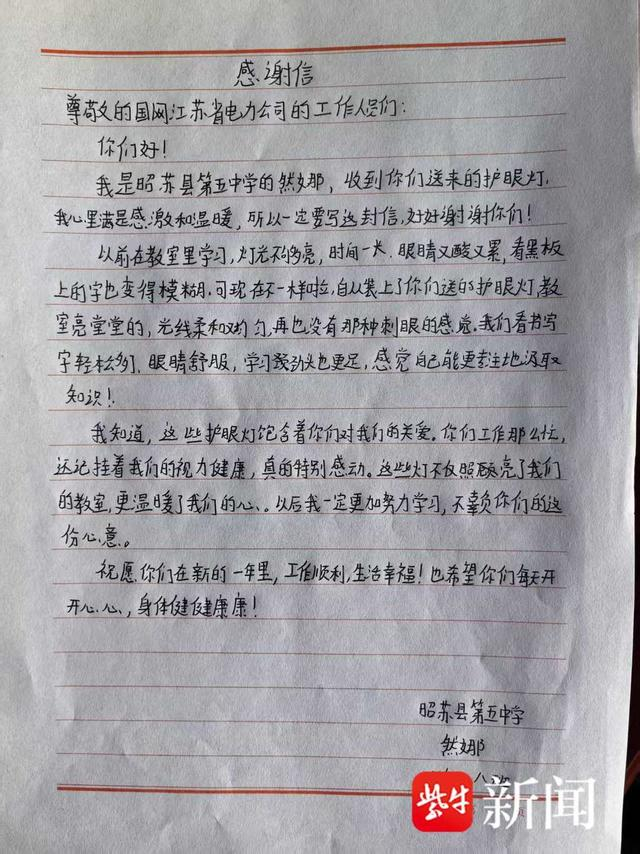 感谢信
尊敬的国网江苏省电力公司的工作人员们：
你们好！
我是昭苏县第五中学的然娜，收到你们送来的护眼灯，
我心里满是感激和温暖，所以一定要写这封信，好好谢谢你们！
以前在教室里学习，灯光不够亮，时间一长，眼睛又酸又累，看黑板
上的字也变得模糊。可现在不一样啦，自从装上了你们送的护眼灯，教
室亮堂堂的，光线柔和又均匀，再也没有那种刺眼的感觉。我们看书写
字轻松多了，眼睛舒服，学习劲头也更足，感觉自己能更专注地汲取
知识！
我知道，这些护眼灯饱含着你们对我们的关爱。你们工作那么忙，
还记挂着我们的视力健康，真的特别感动。这些灯不仅照亮了我们
的教室，更温暖了我们的心。以后我一定更加努力学习，不辜负你们的这
份心意。
祝愿你们在新的一年里，工作顺利，生活幸福！也希望你们每天开
开心心，身体健健康康！
昭苏县第五中学
然娜
紫牛新闻